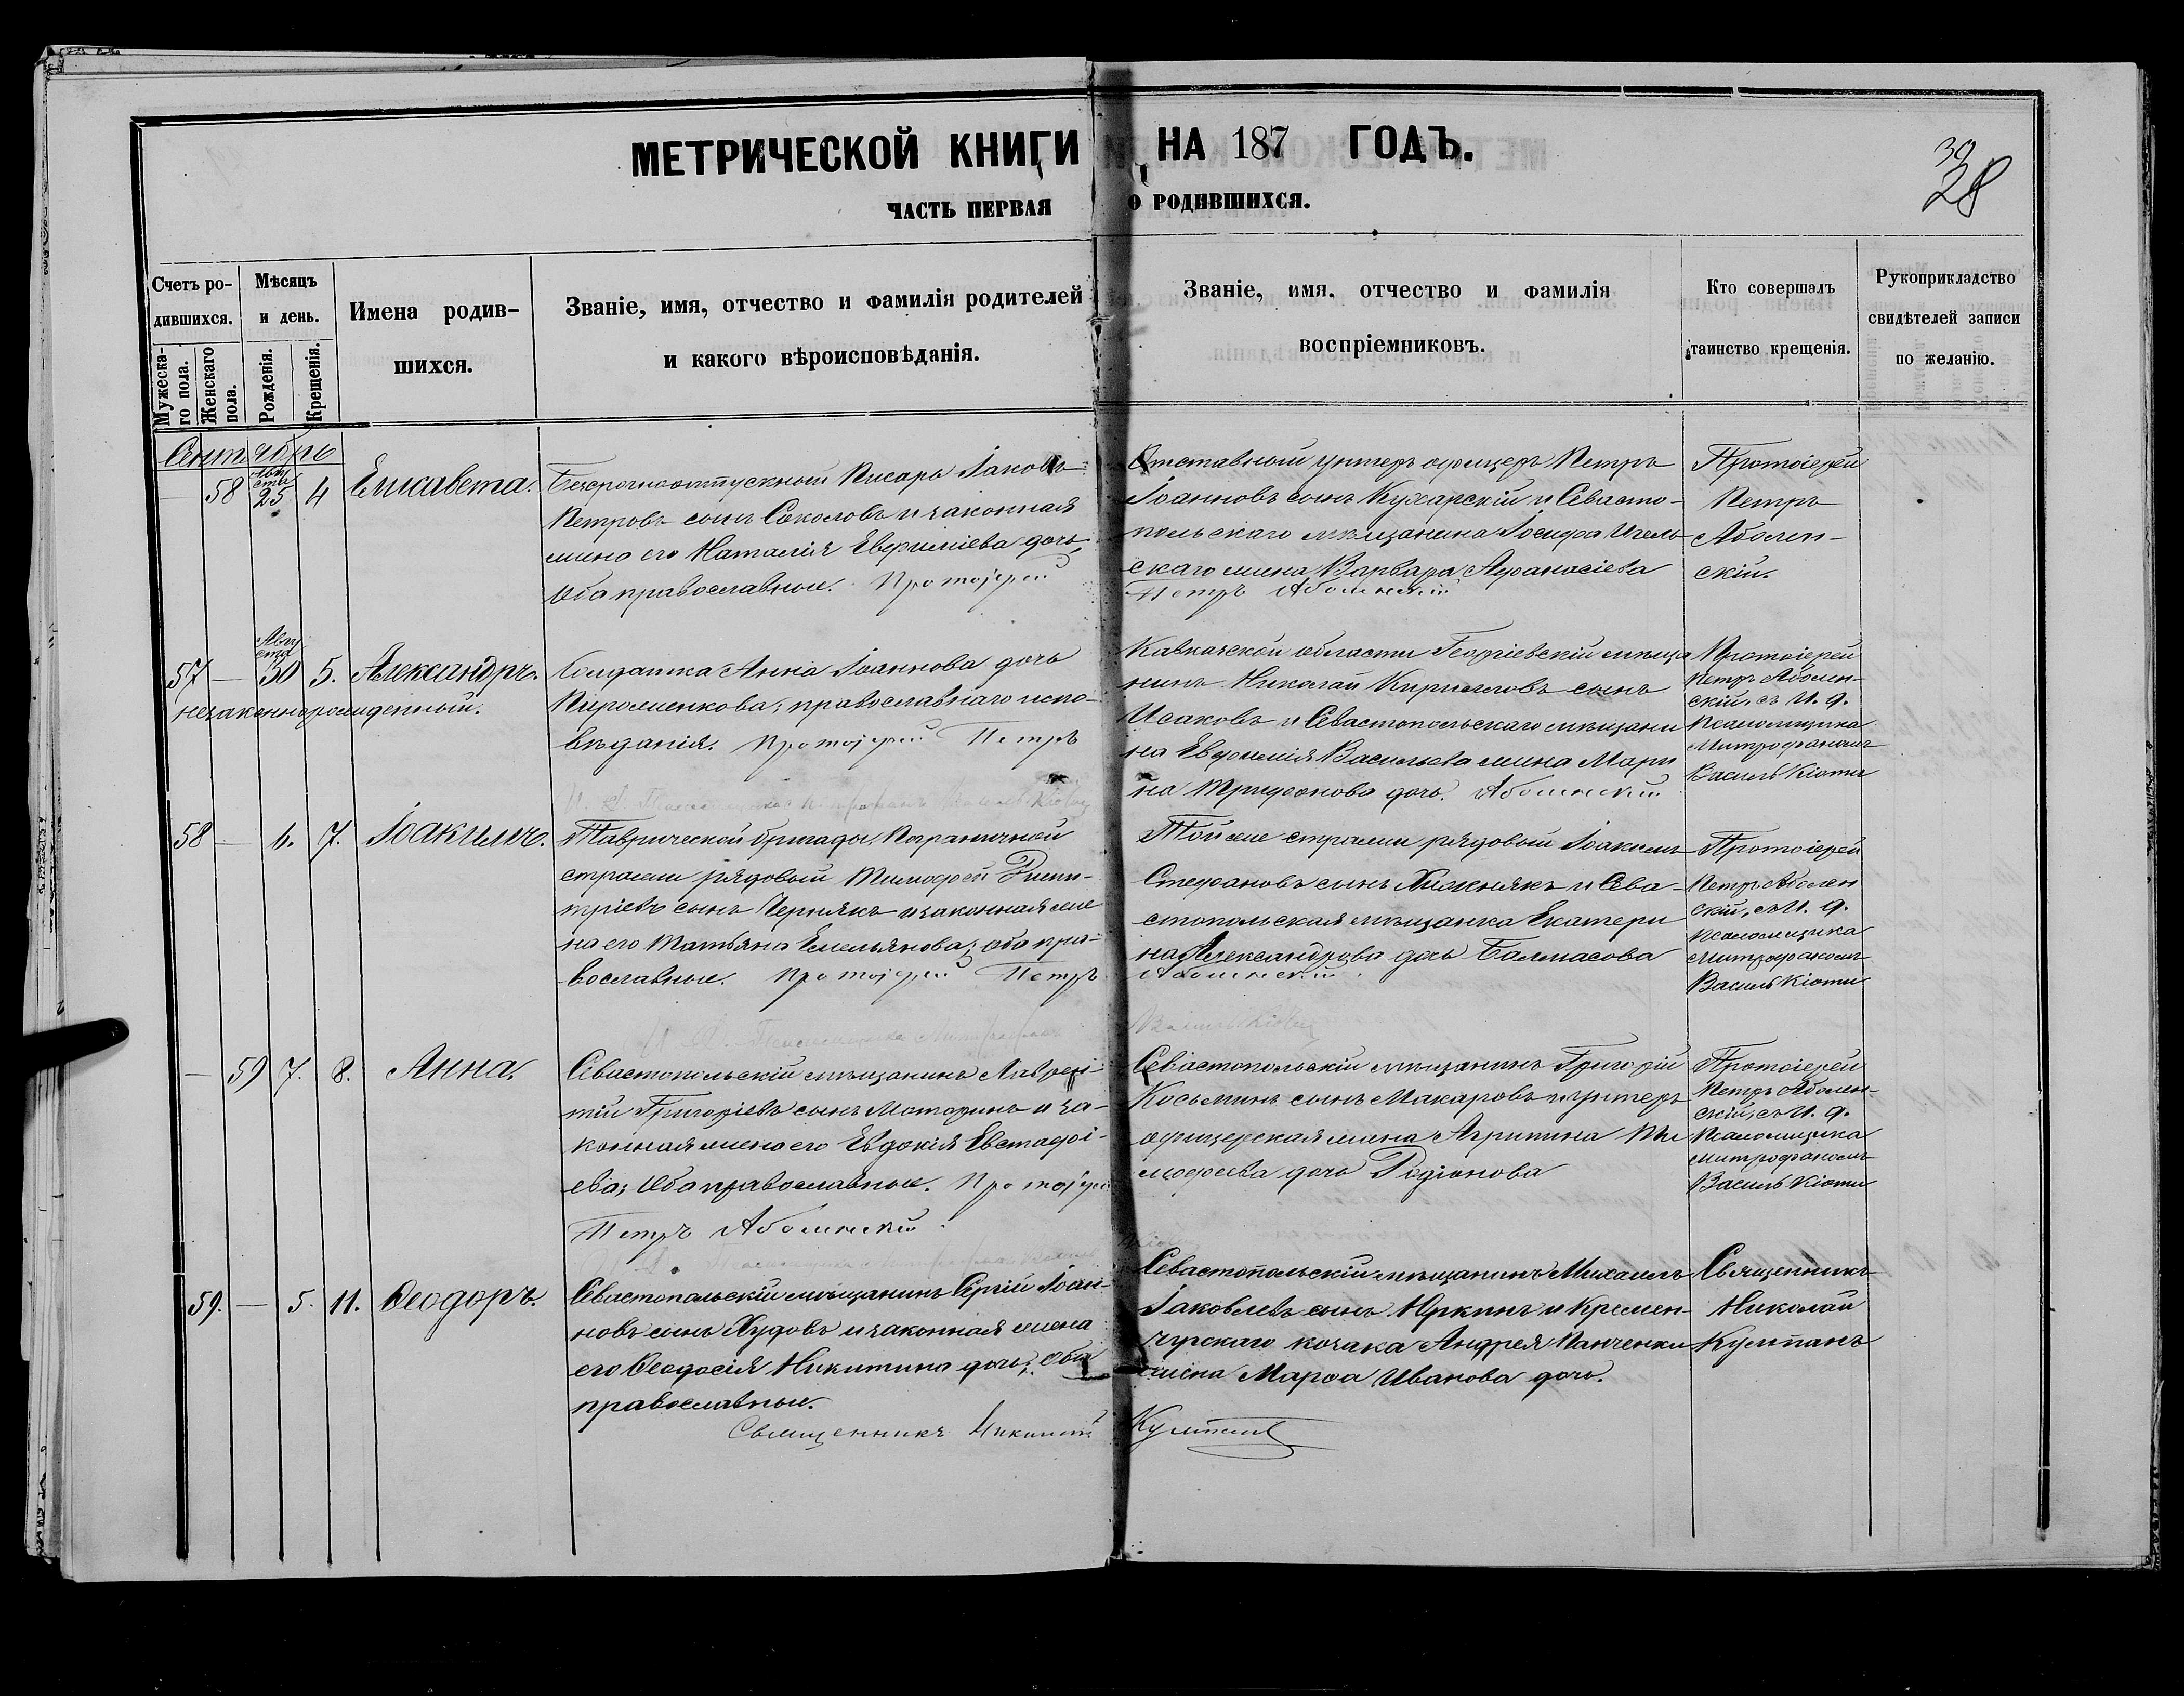 МЕТРИЧЕСКОЙ КНИГИ НА 187 ГОДЪ.
39
28
ЧАСТЬ ПЕРВАЯ О РОДИВШИХСЯ.
Счетъ ро-
дившихся.
Мужеска-
го пола.
Женскаго
пола.
Мѣсяцъ
и день.
Рожденія.
Крещенія.
Имена родив-
шихся.
Званіе, имя, отчество и фамилія родителей
и какого вѣроисповѣданія.
Званіе, имя, отчество и фамилія
воспріемниковъ.
Кто совершалъ
таинство крещенія.
Рукоприкладство
свидѣтелей записи
по желанію.
Сентябрь
58 Августа 25 4 Елисавета.
Безсрочноотпускный Писарь Іаковъ
Петровъ сынъ Соколовъ и законная
жена его Наталія Евфиміева дочь,
Оба православные. Протоіерей
Отставный унтеръ офицеръ Петръ
Іоанновъ сынъ Кухарскій и Севасто-
польскаго мѣщанина Іосифа Игель-
скаго жена Варвара Афанасіева
Петръ Аболенскій
Протоіерей
Петръ
Аболен-
скій.
57 — Августа 30 5. Александръ.
незаконнорожденный.
Солдатка Анна Іоаннова дочь
Пироженкова; православнаго испо-
вѣданія. Протоіерей Петръ
И. Д. Псаломщика Митрофанъ Васильковіоти
Кавказской области Георгіевскій мѣща
нинъ Николай Кирилловъ сынъ
Исаковъ и Севастопольскаго мѣщани
на Евфимія Васильева жена Мари
на Трифонова дочь. Аболенскій
Протоіерей
Петръ Аболен-
скій, съ И. д.
Псаломщика
Митрофаномъ
Василькіоти
58 — 6. 7. Іоакимъ.
Таврической бригады, Пограничной
стражи рядовый Тимофей Дими-
тріевъ сынъ Чернякъ и законная же
на его Татьяна Емельянова; оба пра-
вославные. Протоіерей Петръ
И. Д. Псаломщика Митрофанъ
Той же стражи рядовый Іоакимъ
Стефановъ сынъ Хижнякъ и Сева-
стопольская мѣщанка Екатери
на Александрова дочь Балмасова
Аболенскій.
Василькіоти
Протоіерей
Петръ Аболен
скій, съ И. д.
Псаломщика
Митрофаномъ
Василькіоти
— 59 7. 8. Анна.
Севастопольскій мѣщанинъ Лаврен-
тій Григоріевъ сынъ Моторинъ и за-
конная жена его Евдокія Евстафі-
ева; Оба православные. Протоіерей
Петръ Аболенскій.
Севастопольскій мѣщанинъ Григорій
Косьминъ сынъ Макаровъ и унтеръ
офицерская жена Агрипина Ти
мофеева дочь Родіонова
Протоіерей
Петръ Аболен-
скій, съ И. д.
Псаломщика
Митрофаномъ
Василькіоти
59. — 5. 11. Ѳеодоръ.
Севастопольскій мѣщанинъ Сергій Іоан-
новъ сынъ Худовъ и законная жена
его Ѳеодосія Никитина дочь; Оба
православные.
Священникъ Николай Культанъ
Севастопольскій мѣщанинъ Михаилъ
Іаковлевъ сынъ Юркинъ и Кремен-
чугскаго козака Андрея Панченки
жена Марѳа Иванова дочь.
Священникъ
Николай
Культанъ